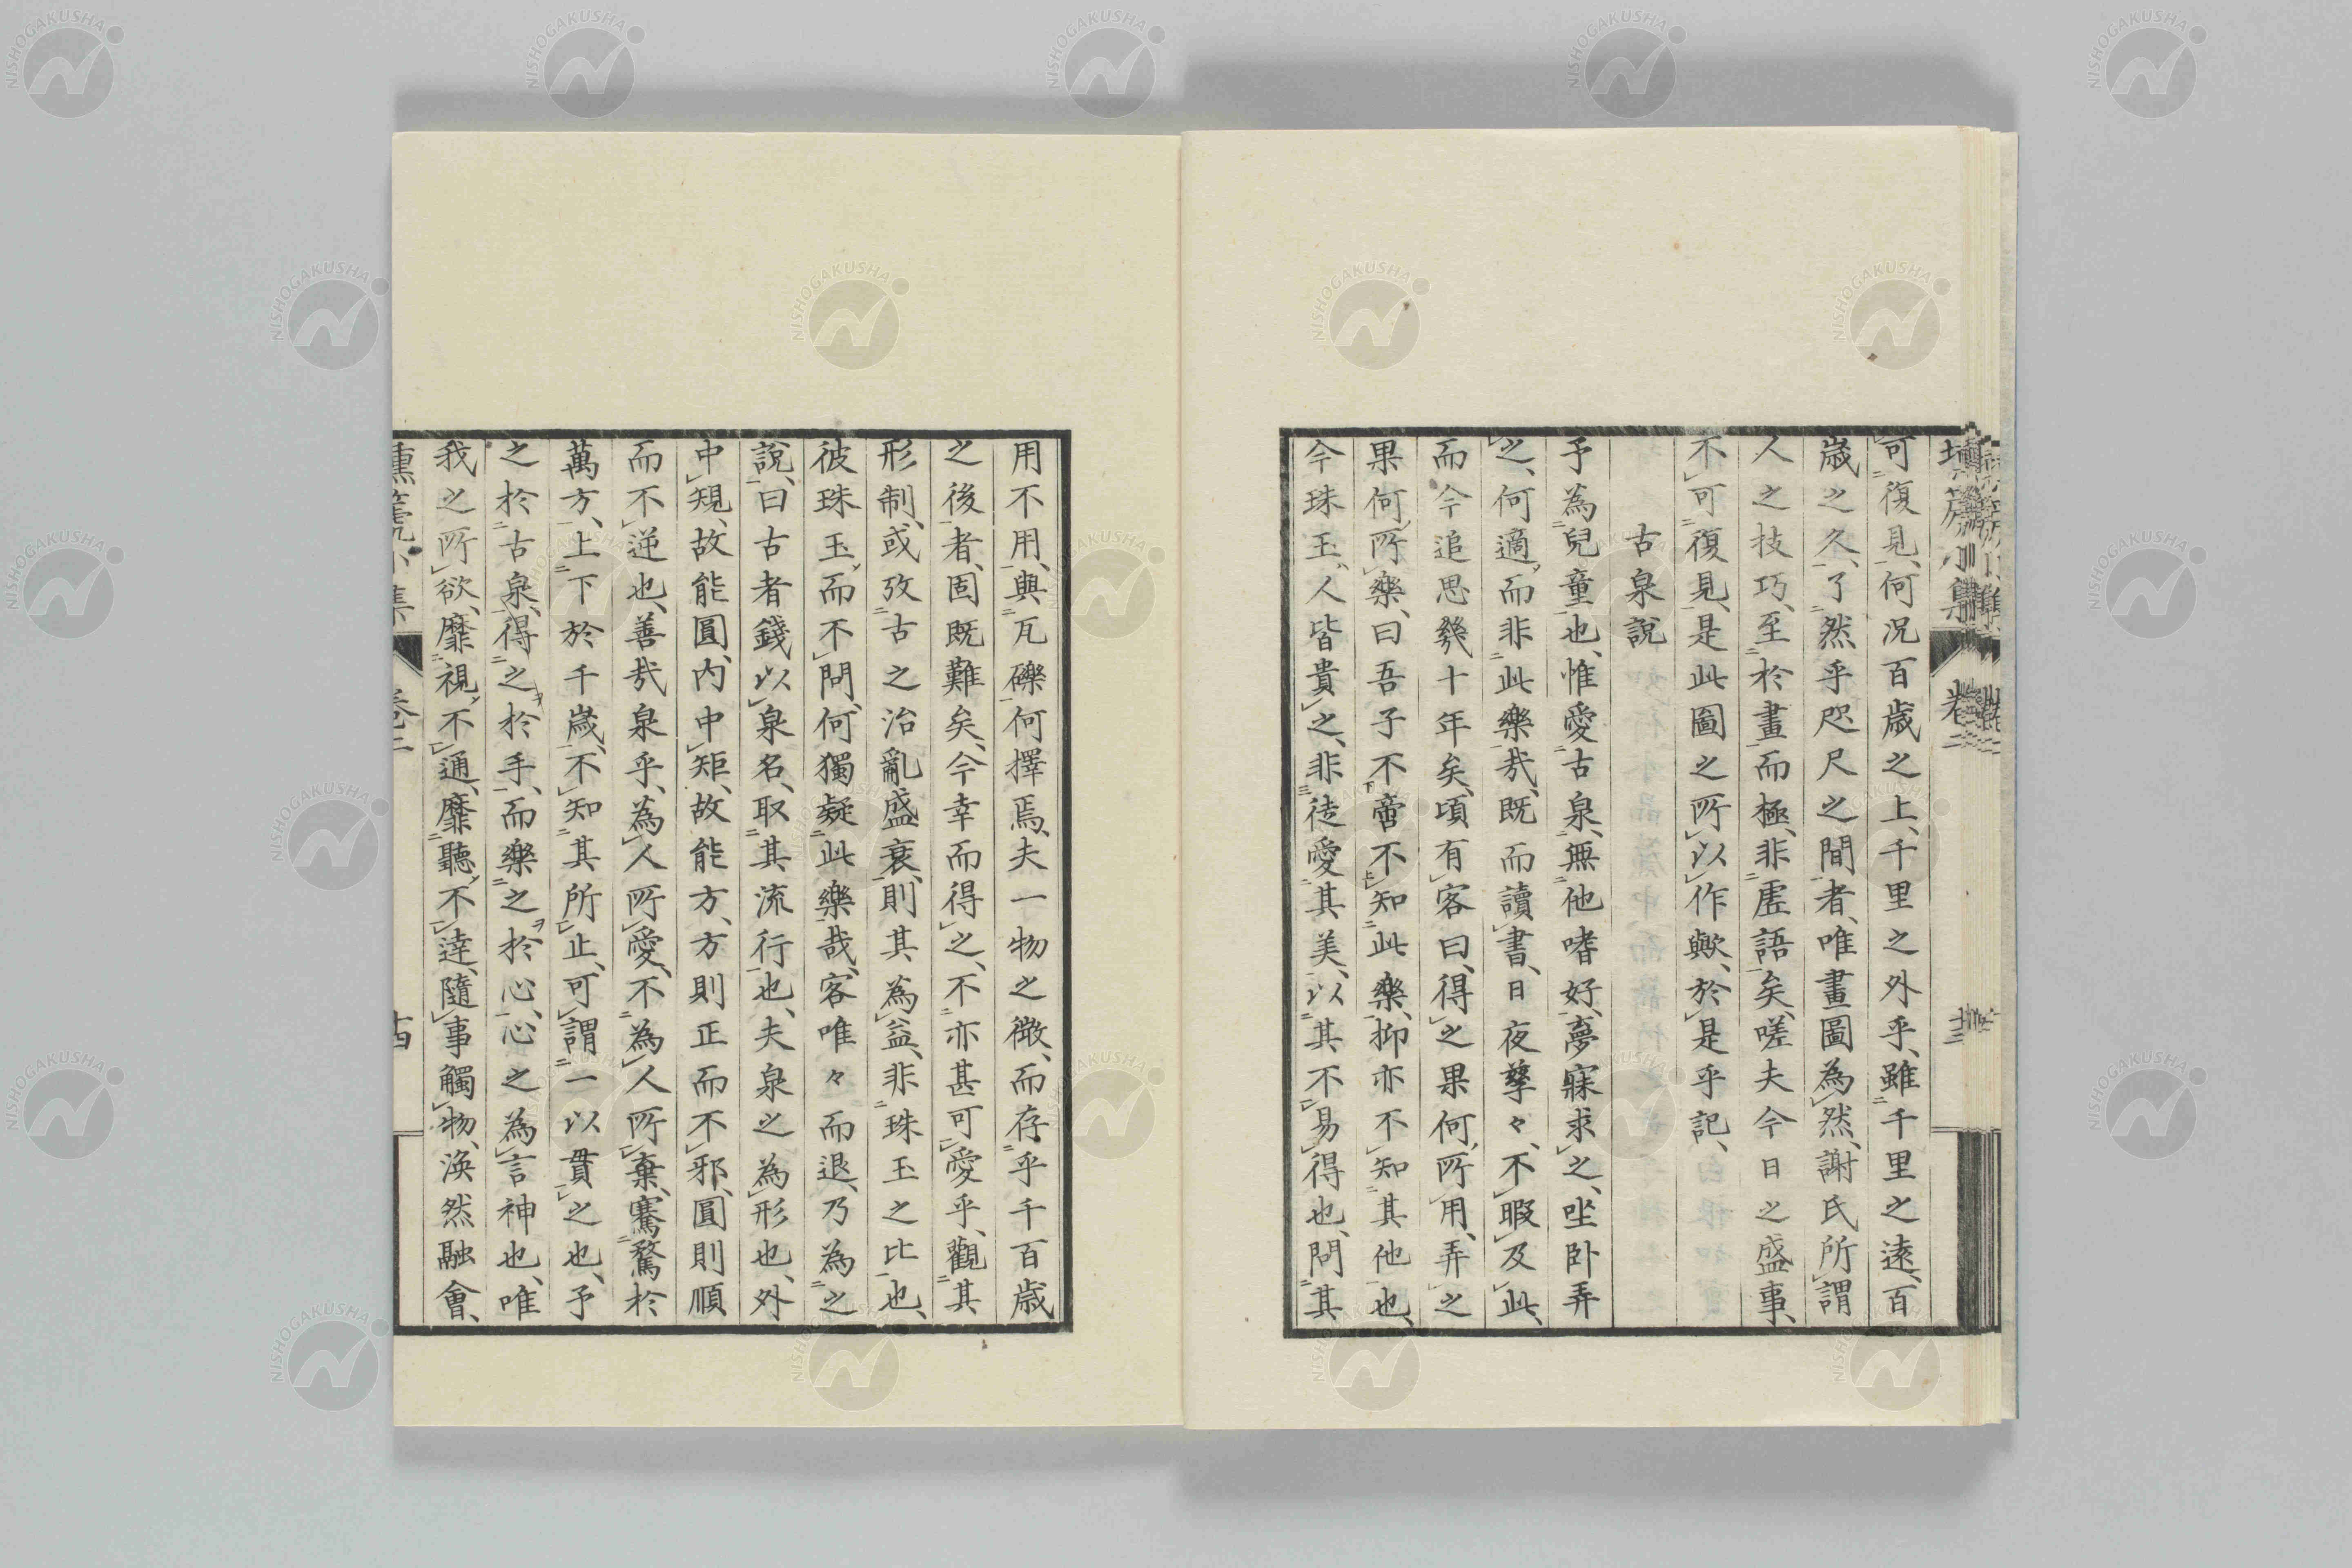 可復見、何況百歲之上、千里之外乎、雖千里之遠、百
歲之久、了然乎咫尺之間者、唯畫圖為然、謝氏所謂
人之技巧、至於畫而極、非虛語矣、嗟夫今日之盛事、
不可復見、是此圖之所以作歟、於是乎記、
古泉說
予為兒童也、惟愛古泉、無他嗜好、夢寐求之、坐卧弄
之、何適而非此樂哉、既而讀書、日夜孳々、不暇及此、
而今追思幾十年矣、頃有客曰、得之果何所用、弄之
果何所樂、曰吾子不啻不知此樂、抑亦不知其他也、
今珠玉、人皆貴之、非徒愛其美、以其不易得也、問其
用不用、與瓦礫何擇焉、夫一物之微、而存乎千百歲
之後者、固既難矣、今幸而得之、不亦甚可愛乎、觀其
形制、或攷古之治亂盛衰、則其為益、非珠玉之比也、
彼珠玉、而不問、何獨疑此樂哉、客唯々而退、乃為之
說、曰古者錢以泉名、取其流行也、夫泉之為形也、外
中規、故能圓、内中矩、故能方、方則正而不邪、圓則順
而不逆也、善哉泉乎、為人所愛、不為人所棄、騫騖於
萬方、上下於千歲、不知其所止、可謂一以貫之也、予
之於古泉、得之於手、而樂之於心、心之為言神也、唯
我之所欲、靡視不通、靡聽不達、隨事觸物、渙然融會、
壎篪小集
卷二
十四
NISHOGAKUSHA